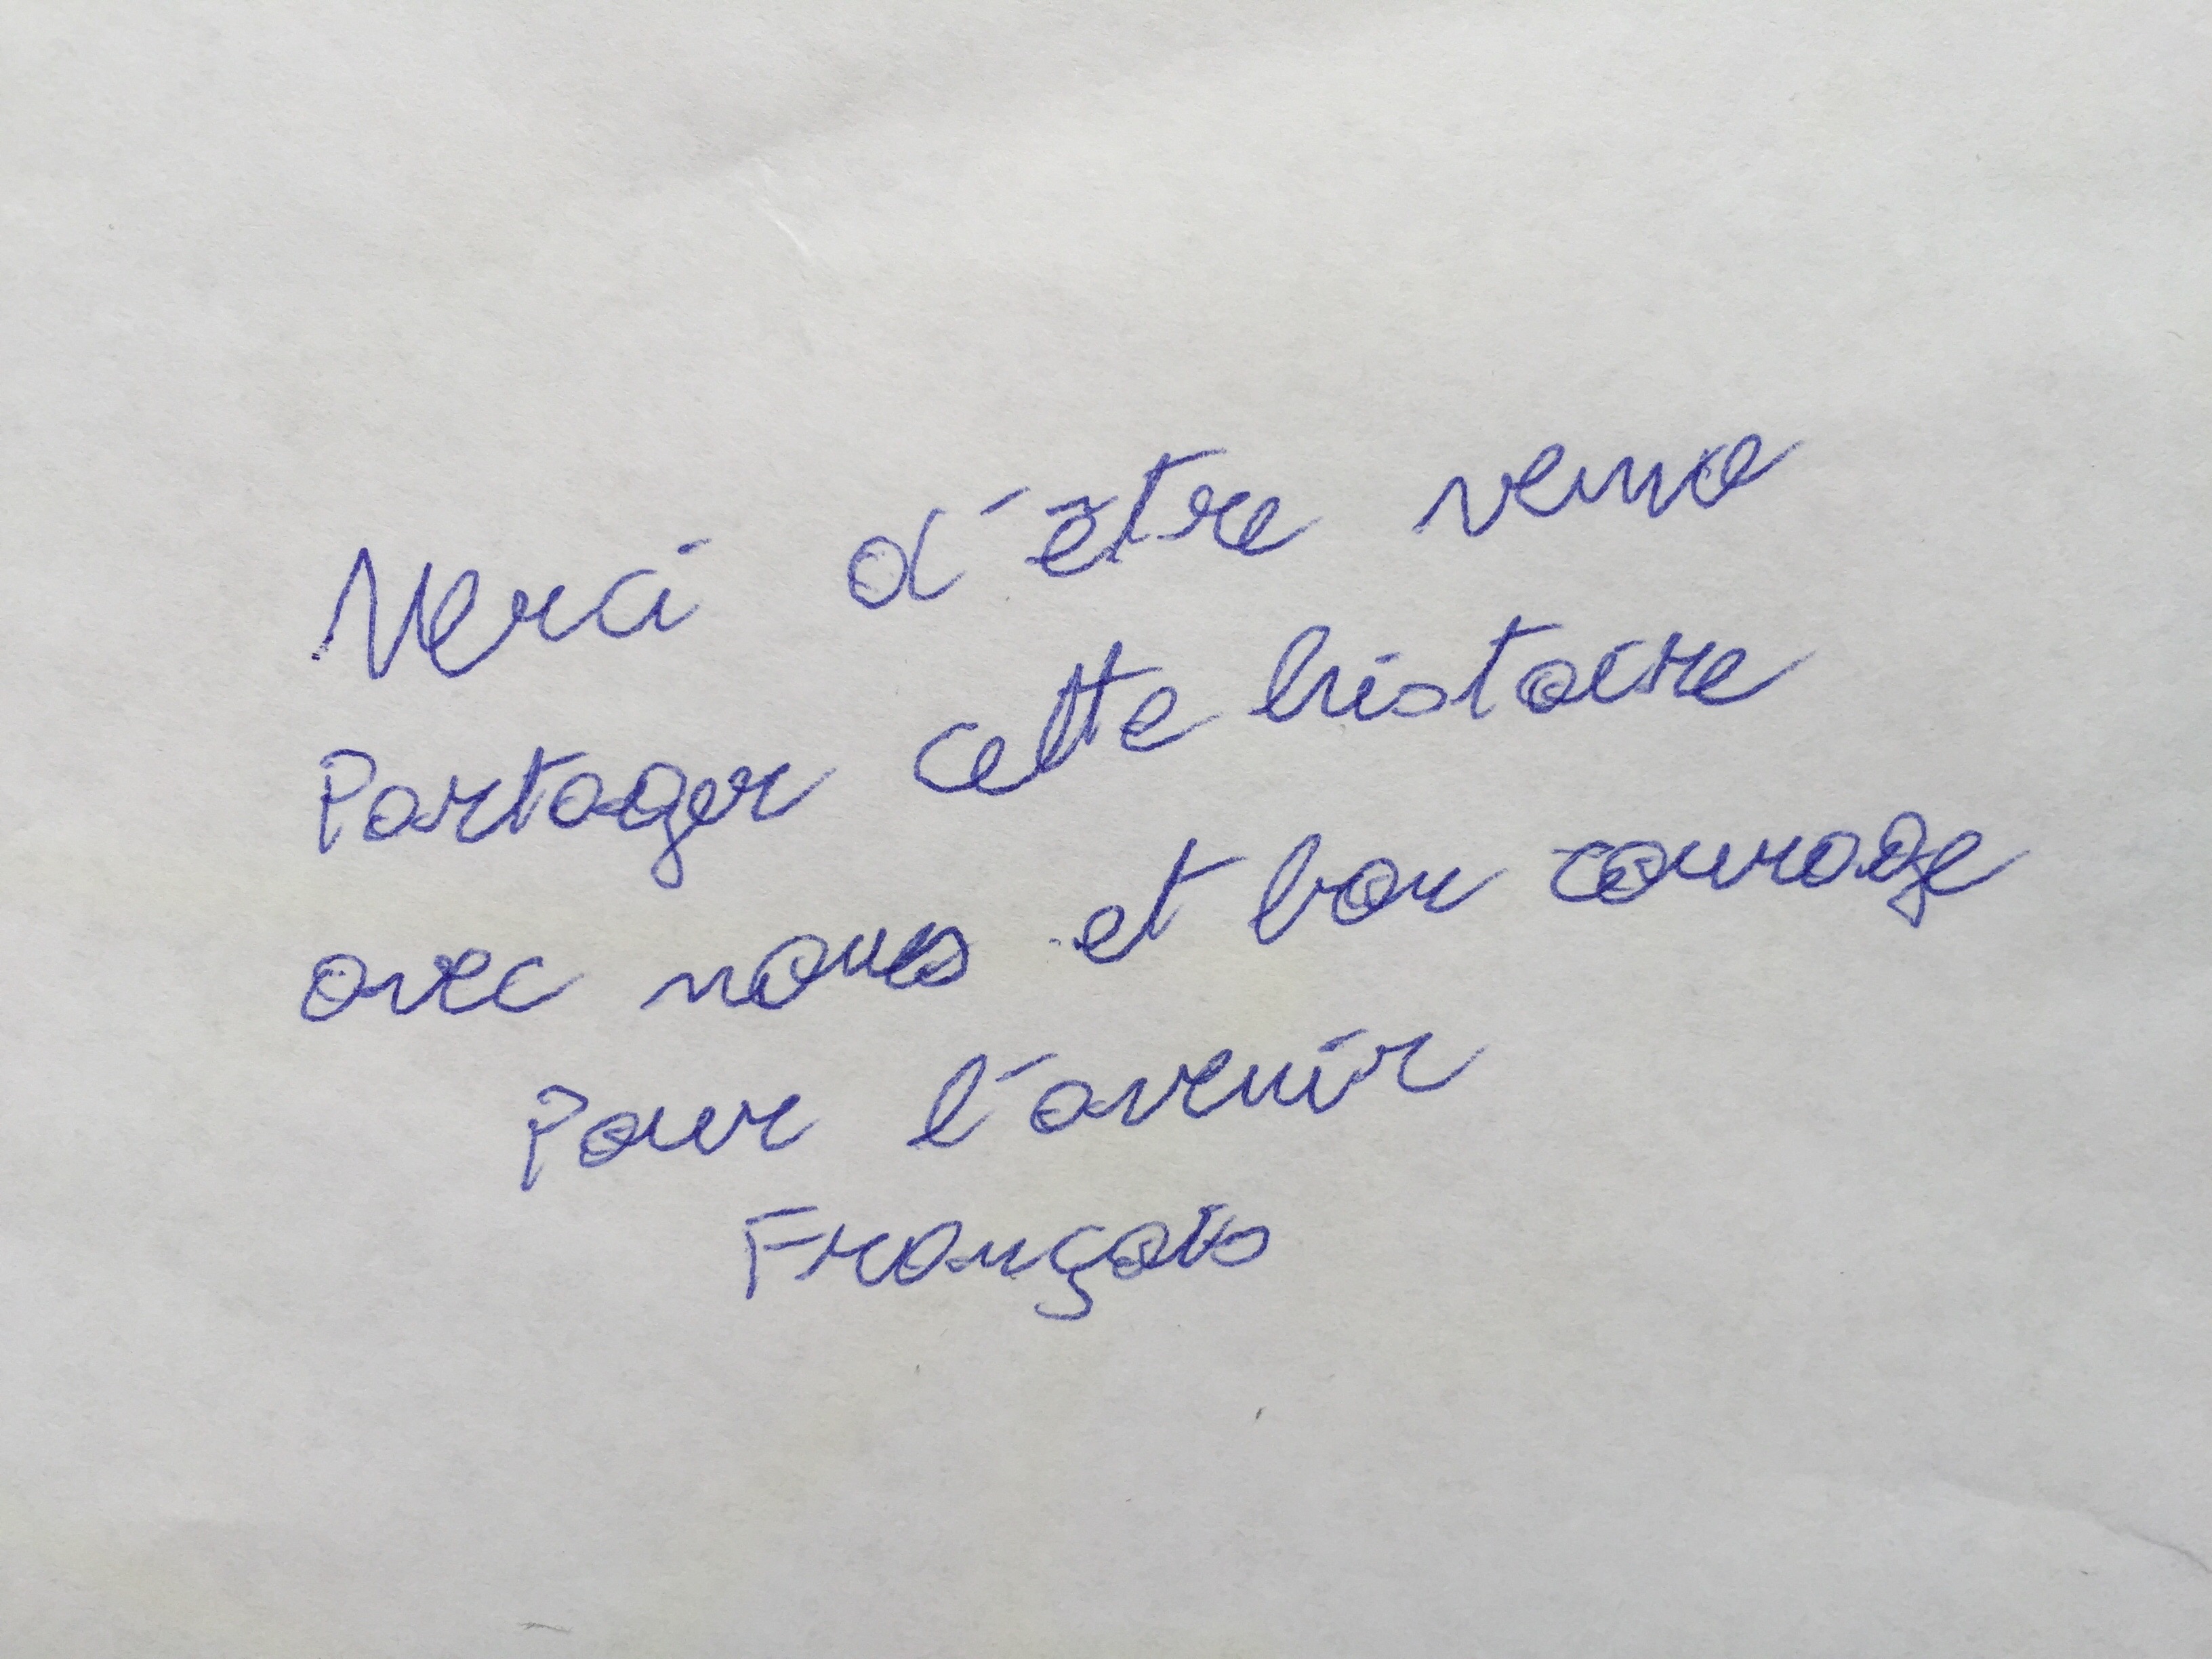 Merci d'être venue
Partager cette histoire
avec nous et bon courage
Pour l'avenir
François